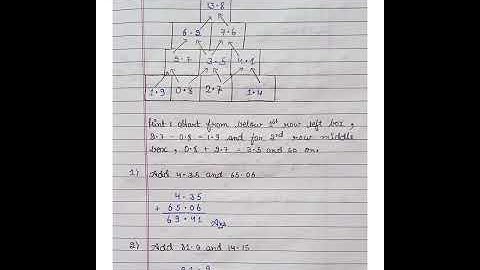 13.8
6.2 7.6
2.7 3.5 4.1
1.9 0.8 2.7 1.4
Hint : Start from below 1st row left box,
2.7 - 0.8 = 1.9 and for 2nd row middle
box, 0.8 + 2.7 = 3.5 and so on.
1) Add 4.35 and 65.06
4.35
+ 65.06
69.41 Ans
2) Add 81.9 and 14.15
81.9